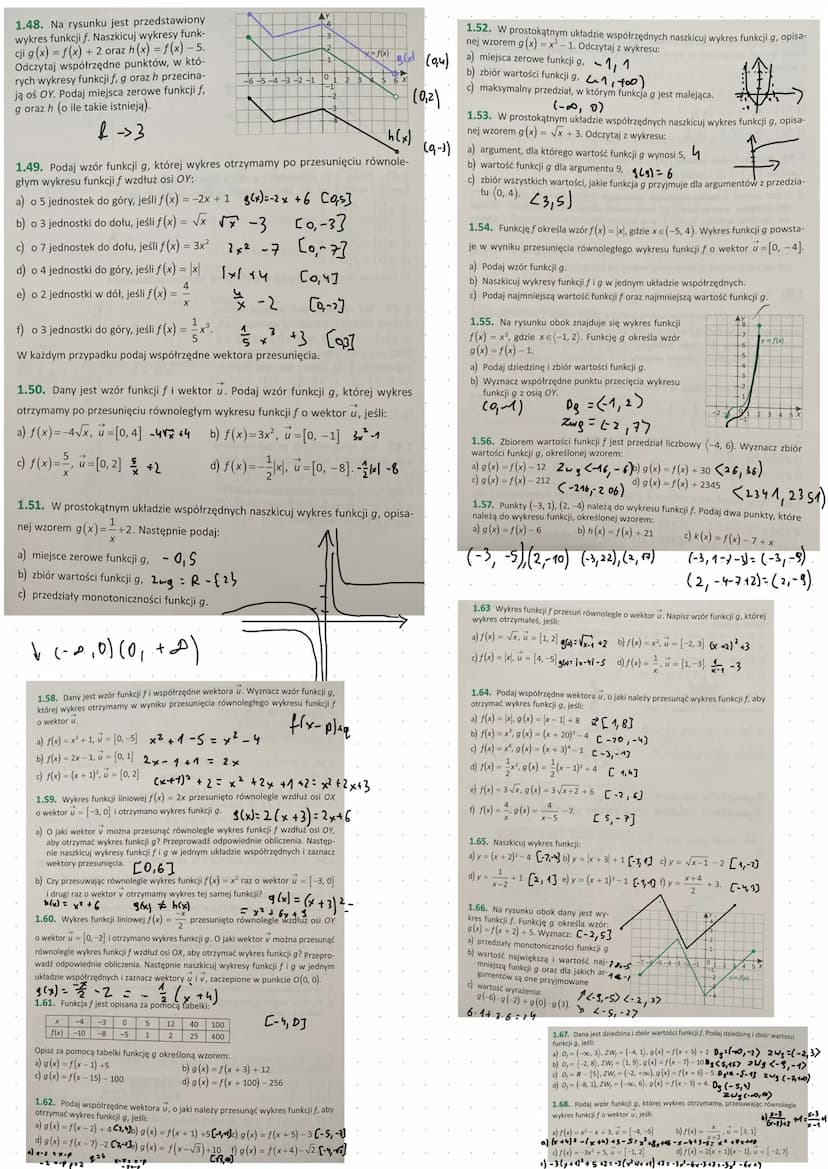 1.48. Na rysunku jest przedstawiony
wykres funkcji f. Naszkicuj wykresy funk-
cji g(x) = f(x) + 2 oraz h(x) = f(x) – 5.
Odczytaj współrzędne punktów, w któ-
rych wykresy funkcji f, g oraz h przecina-
ją oś OY. Podaj miejsca zerowe funkcji f,
g oraz h (o ile takie istnieją).
f → 3
y = f(x)
g(x)
h(x)
(0,4)
(0,2)
(0,-3)
1.49. Podaj wzór funkcji g, której wykres otrzymamy po przesunięciu równole-
głym wykresu funkcji f wzdłuż osi OY:
a) o 5 jednostek do góry, jeśli f(x) = –2x + 1 g(x)=-2x+6 [0,5]
b) o 3 jednostki do dołu, jeśli f(x) = √x √x -3 [0,-3]
c) o 7 jednostek do dołu, jeśli f(x) = 3x² 3x² -7 [0,-7]
d) o 4 jednostki do góry, jeśli f(x) = |x| |x| +4 [0,4]
e) o 2 jednostki w dół, jeśli f(x) = 4/x 4/x -2 [0,-2]
f) o 3 jednostki do góry, jeśli f(x) = 1/5 x³. 1/5 x³ +3 [0,3]
W każdym przypadku podaj współrzędne wektora przesunięcia.
1.50. Dany jest wzór funkcji f i wektor u. Podaj wzór funkcji g, której wykres
otrzymamy po przesunięciu równoległym wykresu funkcji f o wektor u, jeśli:
a) f(x)=–4√x, u=[0, 4] -4√x +4 b) f(x)=3x², u=[0, –1] 3x²-1
c) f(x)=5/x, u=[0, 2] 5/x +2 d) f(x)=–1/2|x|, u=[0, –8]. -1/2|x| -8
1.51. W prostokątnym układzie współrzędnych naszkicuj wykres funkcji g, opisa-
nej wzorem g(x)=1/x+2. Następnie podaj:
a) miejsce zerowe funkcji g, -0,5
b) zbiór wartości funkcji g, Zwg = R-{2}
c) przedziały monotoniczności funkcji g.
↓ (-∞,0)(0,+∞)
1.52. W prostokątnym układzie współrzędnych naszkicuj wykres funkcji g, opisa-
nej wzorem g(x) = x² – 1. Odczytaj z wykresu:
a) miejsca zerowe funkcji g, -1, 1
b) zbiór wartości funkcji g, <-1, +∞)
c) maksymalny przedział, w którym funkcja g jest malejąca.
(-∞, 0)
1.53. W prostokątnym układzie współrzędnych naszkicuj wykres funkcji g, opisa-
nej wzorem g(x) = √x + 3. Odczytaj z wykresu:
a) argument, dla którego wartość funkcji g wynosi 5, 4
b) wartość funkcji g dla argumentu 9, g(9) = 6
c) zbiór wszystkich wartości, jakie funkcja g przyjmuje dla argumentów z przedzia-
łu ⟨0, 4). <3,5)
1.54. Funkcję f określa wzór f(x) = |x|, gdzie x∈⟨–5, 4). Wykres funkcji g powsta-
je w wyniku przesunięcia równoległego wykresu funkcji f o wektor u=[0, –4].
a) Podaj wzór funkcji g.
b) Naszkicuj wykresy funkcji f i g w jednym układzie współrzędnych.
c) Podaj najmniejszą wartość funkcji f oraz najmniejszą wartość funkcji g.
1.55. Na rysunku obok znajduje się wykres funkcji
f(x) = x³, gdzie x∈⟨–1, 2⟩. Funkcję g określa wzór
g(x) = f(x) – 1.
a) Podaj dziedzinę i zbiór wartości funkcji g.
b) Wyznacz współrzędne punktu przecięcia wykresu
funkcji g z osią OY.
(0,-1) Dg = <-1, 2>
Zwg = <-2, 7>
y = f(x)
1.56. Zbiorem wartości funkcji f jest przedział liczbowy ⟨–4, 6). Wyznacz zbiór
wartości funkcji g, określonej wzorem:
a) g(x) = f(x) – 12 Zwg <-16, -6) b) g(x) = f(x) + 30 <26, 36)
c) g(x) = f(x) – 212 <-216,-206) d) g(x) = f(x) + 2345 <2341, 2351)
1.57. Punkty (–3, 1), (2, –4) należą do wykresu funkcji f. Podaj dwa punkty, które
należą do wykresu funkcji, określonej wzorem:
a) g(x) = f(x) – 6 b) h(x) = f(x) + 21 c) k(x) = f(x) – 7 + x
(-3, -5),(2,-10) (-3,22),(2,17) (-3,1-7-3)=(-3,-9)
(2, -4-7+2)=(2,-9)
1.58. Dany jest wzór funkcji f i współrzędne wektora u. Wyznacz wzór funkcji g,
której wykres otrzymamy w wyniku przesunięcia równoległego wykresu funkcji f
o wektor u. f(x-p)+q
a) f(x) = x² + 1, u = [0, –5] x²+1-5=x²-4
b) f(x) = 2x – 1, u = [0, 1] 2x-1+1=2x
c) f(x) = (x + 1)², u = [0, 2] (x+1)²+2=x²+2x+1+2=x²+2x+3
1.59. Wykres funkcji liniowej f(x) = 2x przesunięto równolegle wzdłuż osi OX
o wektor u = [–3, 0] i otrzymano wykres funkcji g. g(x)=2(x+3)=2x+6
a) O jaki wektor v można przesunąć równolegle wykres funkcji f wzdłuż osi OY,
aby otrzymać wykres funkcji g? Przeprowadź odpowiednie obliczenia. Następ-
nie naszkicuj wykresy funkcji f i g w jednym układzie współrzędnych i zaznacz
wektory przesunięcia. [0,6]
b) Czy przesuwając równolegle wykres funkcji f(x) = x² raz o wektor u = [–3, 0]
i drugi raz o wektor v otrzymamy wykres tej samej funkcji? g(x)=(x+3)²=
h(x)=x²+6 g(x)≠h(x) =x²+6x+9
1.60. Wykres funkcji liniowej f(x) = –x/2 przesunięto równolegle wzdłuż osi OY
o wektor u = [0, –2] i otrzymano wykres funkcji g. O jaki wektor v można przesunąć
równolegle wykres funkcji f wzdłuż osi OX, aby otrzymać wykres funkcji g? Przepro-
wadź odpowiednie obliczenia. Następnie naszkicuj wykresy funkcji f i g w jednym
układzie współrzędnych i zaznacz wektory u i v, zaczepione w punkcie O(0, 0).
g(x)=-x/2-2=-1/2(x+4) [-4,0]
1.61. Funkcja f jest opisana za pomocą tabelki:
x –4 –3 0 5 12 40 100
f(x) –10 –8 –5 1 2 25 400
Opisz za pomocą tabelki funkcję g określoną wzorem:
a) g(x) = f(x – 1) + 5 b) g(x) = f(x + 3) + 12
c) g(x) = f(x – 15) – 100 d) g(x) = f(x + 100) – 256
1.62. Podaj współrzędne wektora u, o jaki należy przesunąć wykres funkcji f, aby
otrzymać wykres funkcji g, jeśli:
a) g(x) = f(x – 2) + 4 [2,4] b) g(x) = f(x + 1) + 5 [-1,5] c) g(x) = f(x + 5) – 3 [-5,-3]
d) g(x) = f(x – 7) – 2 [7,-2] e) g(x) = f(x – √3) + 10 [√3,10] f) g(x) = f(x + 4) – √2 [-4,-√2]
1.63 Wykres funkcji f przesuń równolegle o wektor u. Napisz wzór funkcji g, której
wykres otrzymałeś, jeśli:
a) f(x) = √x, u = [1, 2] g(x)=√x-1 +2 b) f(x) = x², u = [–2, 3] (x+2)²+3
c) f(x) = |x|, u = [4, –5] g(x)=|x-4|-5 d) f(x) = 1/x, u = [1, –3]. 1/x-1 -3
1.64. Podaj współrzędne wektora u, o jaki należy przesunąć wykres funkcji f, aby
otrzymać wykres funkcji g, jeśli:
a) f(x) = |x|, g(x) = |x – 1| + 8 [1,8]
b) f(x) = x³, g(x) = (x + 20)³ – 4 [-20,-4]
c) f(x) = x⁴, g(x) = (x + 3)⁴ – 1 [-3,-1]
d) f(x) = 1/2x², g(x) = 1/2(x – 1)² + 4 [1,4]
e) f(x) = 3√x, g(x) = 3√x+2 + 6 [-2,6]
f) f(x) = 4/x, g(x) = 4/x–5 – 7. [5,-7]
1.65. Naszkicuj wykres funkcji:
a) y = (x + 2)² – 4 [-2,-4] b) y = |x + 3| + 1 [-3,1] c) y = √x–1 – 2 [1,-2]
d) y = 1/x–2 + 1 [2,1] e) y = (x + 1)³ – 1 [-1,-1] f) y = x+4/2 + 3. [-4,3]
1.66. Na rysunku obok dany jest wy-
kres funkcji f. Funkcję g określa wzór:
g(x) = f(x + 2) + 5. Wyznacz: [-2,5]
a) przedziały monotoniczności funkcji g
b) wartość największą i wartość naj-
mniejszą funkcji g oraz dla jakich ar-
gumentów są one przyjmowane
c) wartość wyrażenia:
g(–6)·g(–2) + g(0)·g(3).
6·1+3·6=14
y=f(x)
1.67. Dana jest dziedzina i zbiór wartości funkcji f. Podaj dziedzinę i zbiór wartości
funkcji g, jeśli:
1.68. Podaj wzór funkcji g, której wykres otrzymamy, przesuwając równolegle
wykres funkcji f o wektor u, jeśli: